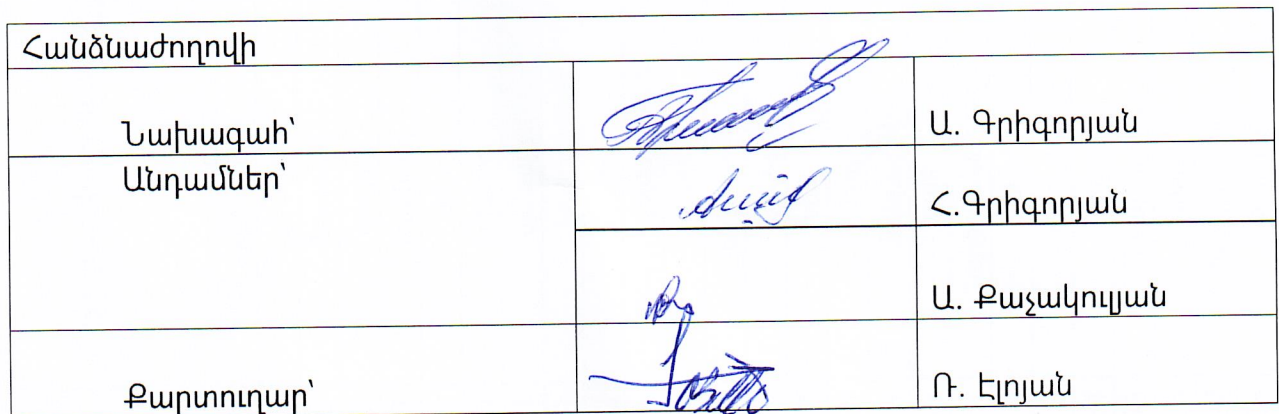 Հանձնաժողովի
Նախագահ՝ Ա. Գրիգորյան
Անդամներ՝ Հ.Գրիգորյան
Ա. Քաչակուլյան
Քարտուղար՝ Ռ. Էլոյան